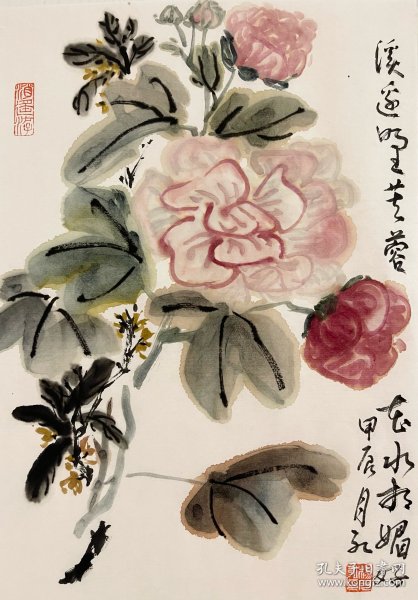 溪边野芙蓉
花水相媚好
甲辰月初
孔夫子旧书网